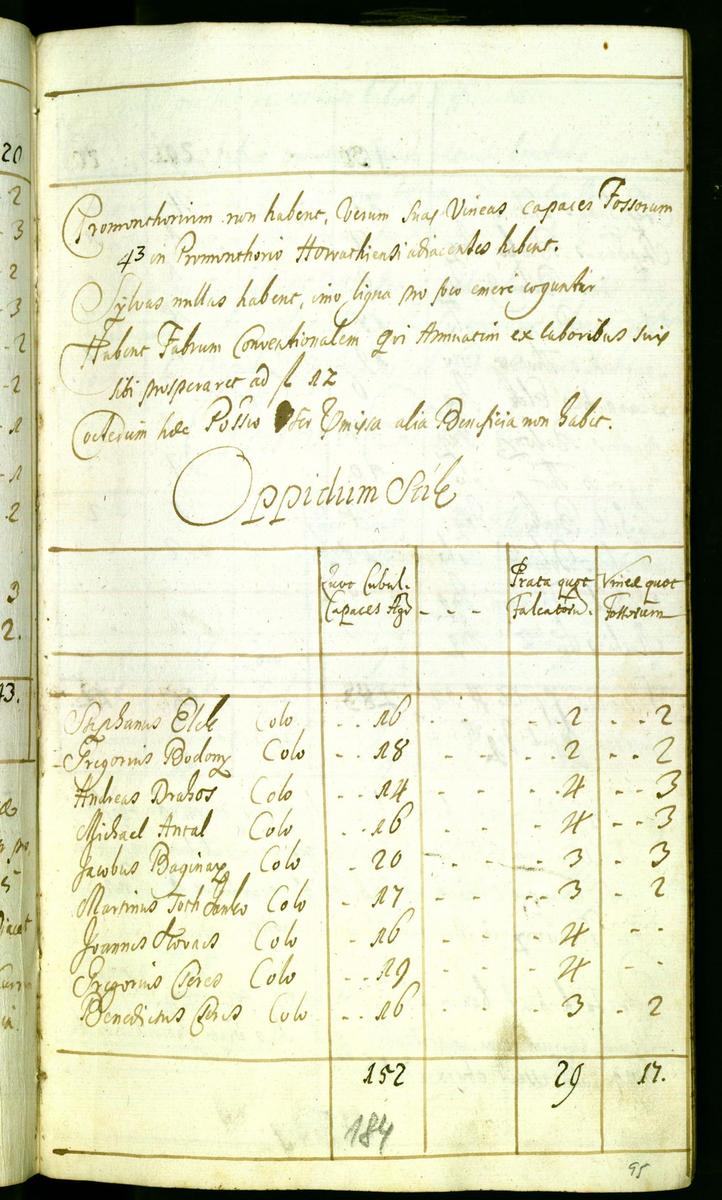 Promonthorium non habent, Verum Suas Vineas capaces Fossorum
43 in Promonthorio Horvathiensi adiacentes habent.
Sylvas nullas habent, imo ligna pro foco emere coguntur
Habent Fabrum Conventionalem qvi Annuatim ex laboribus suis
sibi prosperaret ad f 12
Coeterum haec Possio alia Beneficia non habet.
Oppidum
Quot Cubul. Capaces Agri - - - Prata quot Falcatoru. Vineae quot Fossorum
Stephanus Elek Colo - - 16 - - - - 2 - - 2
Gregorius Bodony Colo - - 18 - - - - 2 - - 2
Andreas Drahos Colo - - 14 - - - - 4 - - 3
Michael Antal Colo - - 16 - - - - 4 - - 3
Jacobus Baginay Colo - 20 - - - 3 - 3
Martinus Toth Janko Colo - 17 - - - - 3 - 2
Joannes Kovacs Colo - 16 - - - 4 - -
Gregorius Cseres Colo - 19 - - - 4 - -
Benedictus Cseres Colo - - 16 - - - 3 - 2
152 29 17.
184
95
20
2
3
2
3
2
2
1
1
2
3
2.
43.